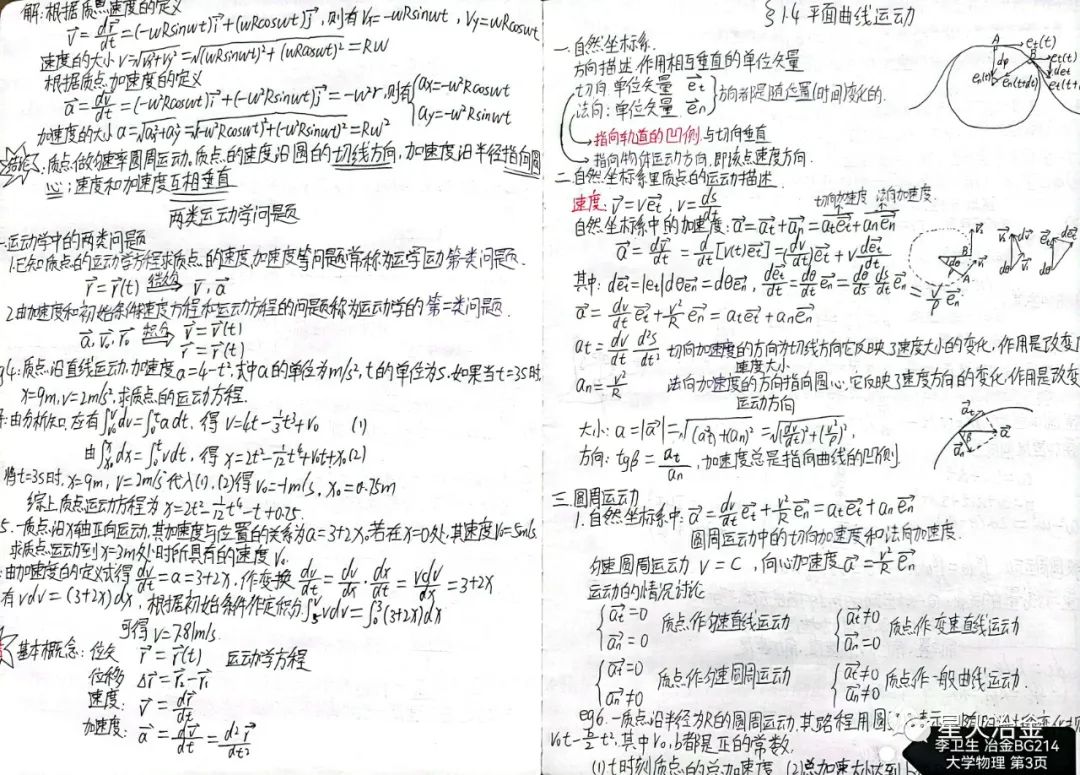 解:根据质点速度的定义
v⃗=dr⃗/dt=(-wRsinwt)i⃗+(wRcoswt)j⃗,则有Vx=-wRsinwt,Vy=wRcoswt
速度的大小V=√(Vx²+Vy²)=√((wRsinwt)²+(wRcoswt)²)=RW
根据质点加速度的定义
a⃗=dv⃗/dt=(-w²Rcoswt)i⃗+(-w²Rsinwt)j⃗=-w²r⃗,则有{ax=-w²Rcoswt
ay=-w²Rsinwt
加速度的大小a=√(ax²+ay²)=√((-w²Rcoswt)²+(-w²Rsinwt)²)=RW²
结论:质点做匀速率圆周运动,质点的速度沿圆的切线方向,加速度沿半径指向圆
心;速度和加速度互相垂直
两类运动学问题
一.运动学中的两类问题
1.已知质点的运动学方程求质点的速度,加速度等问题常称为运学动第一类问题.
r⃗=r⃗(t) → v⃗,a⃗
2.由加速度和初始条件求速度方程和运动方程的问题称为运动学的第二类问题.
a⃗,v⃗₀,r⃗₀ → v⃗=v⃗(t)
r⃗=r⃗(t)
eg4:质点沿直线运动,加速度a=4-t²,式中a的单位为m/s²,t的单位为s,如果当t=3s时,
x=9m,v=2m/s,求质点的运动方程.
解:由分析知,应有∫dv=∫₀ᵗadt,得 v=4t-1/3t³+v₀ (1)
由∫dx=∫₀ᵗvdt,得 x=2t²-1/12t⁴+v₀t+x₀ (2)
将t=3s时,x=9m,v=2m/s代入(1),(2)得v₀=-1m/s,x₀=0.75m
综上质点运动方程为x=2t²-1/12t⁴-t+0.75.
5.一质点沿x轴正向运动,其加速度与位置的关系为a=3+2x,若在x=0处,其速度V₀=5m/s,
求质点运动到x=3m处时所具有的速度V.
由加速度的定义式得dv/dt=a=3+2x,作变换dv/dt=dv/dx·dx/dt=vdv/dx=3+2x
有vdv=(3+2x)dx,根据初始条件作定积分∫₅ᵛvdv=∫₀³(3+2x)dx
可得v=7.81m/s.
基本概念:位矢 r⃗=r⃗(t) 运动学方程
位移 Δr⃗=r⃗₂-r⃗₁
速度: v⃗=dr⃗/dt
加速度: a⃗=dv⃗/dt=d²r⃗/dt²
§1.4 平面曲线运动
一.自然坐标系.
方向描述,作用相互垂直的单位矢量
切向:单位矢量 e⃗t
法向:单位矢量 e⃗n
方向都是随位置(时间)变化的.
指向轨道的凹侧,与切向垂直
指向物体运动方向,即该点速度方向.
二.自然坐标系里质点的运动描述.
速度:v⃗=ve⃗t,v=ds/dt
切向加速度 法向加速度
自然坐标系中的加速度:a⃗=a⃗t+a⃗n=ate⃗t+ane⃗n
a⃗=dv⃗/dt=d/dt[v(t)e⃗t]=(dv/dt)e⃗t+vde⃗t/dt
其中:de⃗t=|et|dθe⃗n=dθe⃗n,de⃗t/dt=dθ/dt e⃗n=dθ/ds ds/dt e⃗n=v/ρ e⃗n
a⃗=dv/dt e⃗t+v²/R e⃗n=ate⃗t+ane⃗n
at=dv/dt d²s/dt² 切向加速度的方向为切线方向它反映了速度大小的变化,作用是改变
速度大小
an=v²/R 法向加速度的方向指向圆心,它反映了速度方向的变化,作用是改变
运动方向
大小:a=|a⃗|=√((at)²+(an)²)=√((dv/dt)²+(v²/ρ)²),
方向:tgβ=at/an,加速度总是指向曲线的凹侧.
三.圆周运动
1.自然坐标系中:a⃗=dv/dt e⃗t+v²/R e⃗n=ate⃗t+ane⃗n
圆周运动中的切向加速度和法向加速度.
匀速圆周运动 V=C,向心加速度a⃗=v²/R e⃗n
运动的情况讨论
{a⃗t=0 a⃗n=0 质点作匀速直线运动 {a⃗t≠0 a⃗n=0 质点作变速直线运动
{a⃗t=0 a⃗n≠0 质点作匀速圆周运动 {a⃗t≠0 a⃗n≠0 质点作一般曲线运动.
eg6.一质点沿半径为R的圆周运动,其路程用圆
V₀t-b/2t²,其中V₀,b都是正的常数.
(1)t时刻质点的总加速度 (2)总加速大小达到b
星火冶金
李卫生 冶金BG214
大学物理 第3页